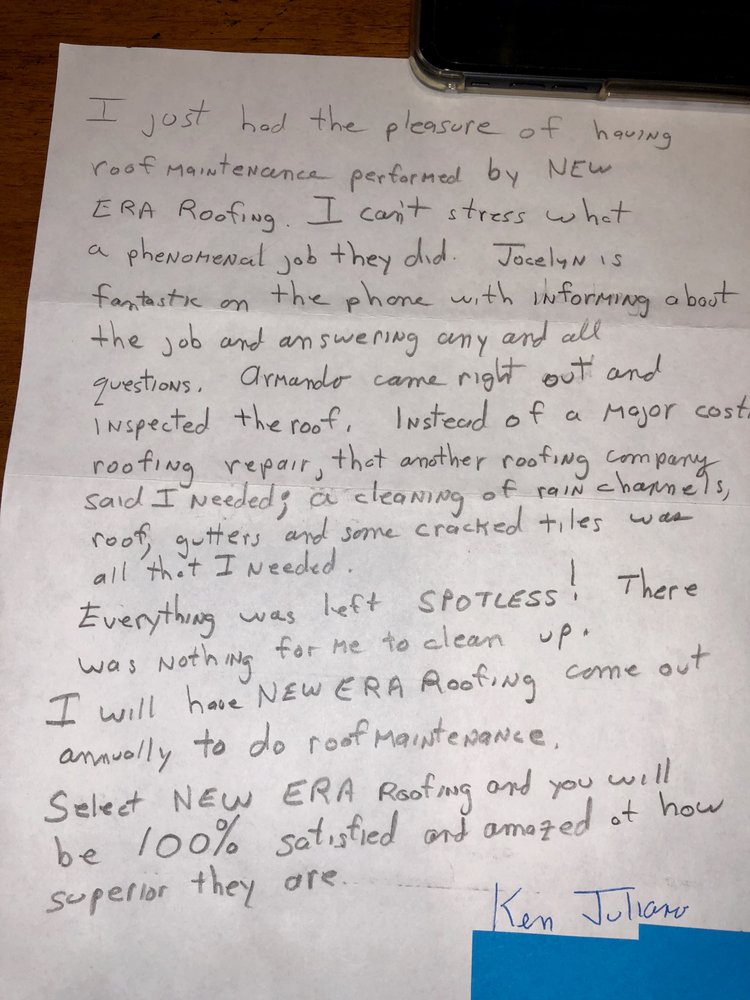 I just had the pleasure of having
roof maintenance performed by NEW
ERA Roofing. I can't stress what
a phenomenal job they did. Jocelyn is
fantastic on the phone with informing about
the job and answering any and all
questions. Armando came right out and
inspected the roof. Instead of a major cost
roofing repair, that another roofing company
said I needed; a cleaning of rain channels,
roof, gutters and some cracked tiles was
all that I needed.
Everything was left SPOTLESS! There
was nothing for me to clean up.
I will have NEW ERA Roofing come out
annually to do roof maintenance.
Select NEW ERA Roofing and you will
be 100% satisfied and amazed at how
superior they are.
Ken Juliano